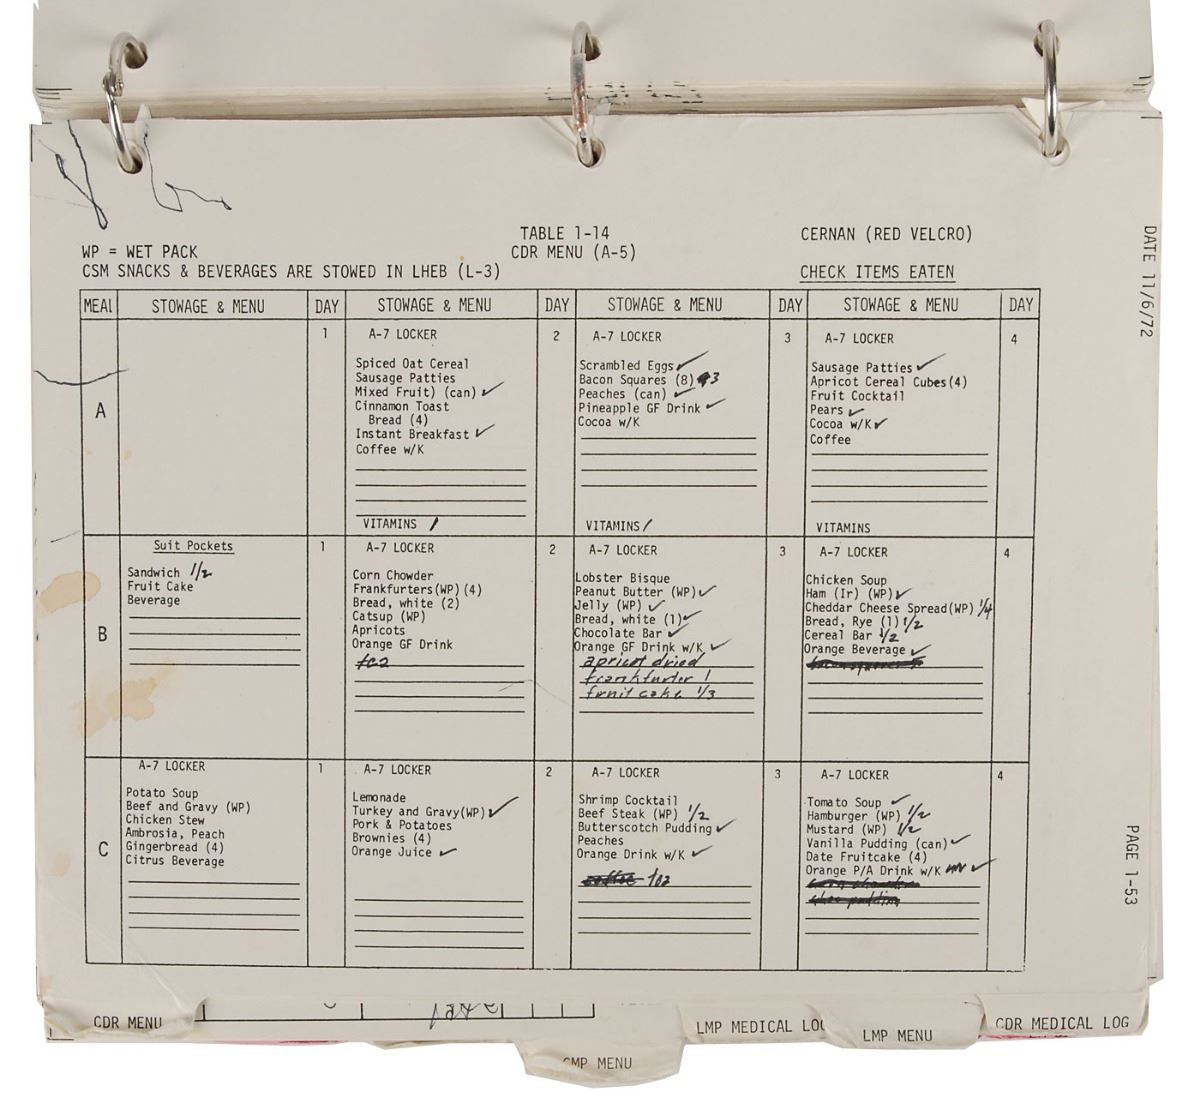 TABLE 1-14
CERNAN (RED VELCRO)
WP = WET PACK
CDR MENU (A-5)
CSM SNACKS & BEVERAGES ARE STOWED IN LHEB (L-3)
CHECK ITEMS EATEN
DATE 11/6/72
MEAL STOWAGE & MENU DAY STOWAGE & MENU DAY STOWAGE & MENU DAY STOWAGE & MENU DAY
A
1
A-7 LOCKER
Spiced Oat Cereal
Sausage Patties
Mixed Fruit) (can) ✓
Cinnamon Toast
Bread (4)
Instant Breakfast ✓
Coffee w/K
VITAMINS /
2
A-7 LOCKER
Scrambled Eggs ✓
Bacon Squares (8) 3
Peaches (can) ✓
Pineapple GF Drink ✓
Cocoa w/K
VITAMINS /
3
A-7 LOCKER
Sausage Patties ✓
Apricot Cereal Cubes(4)
Fruit Cocktail
Pears ✓
Cocoa w/K ✓
Coffee
VITAMINS
4
B
Suit Pockets
Sandwich 1/2
Fruit Cake
Beverage
1
A-7 LOCKER
Corn Chowder
Frankfurters(WP)(4)
Bread, white (2)
Catsup (WP)
Apricots
Orange GF Drink
2
A-7 LOCKER
Lobster Bisque
Peanut Butter (WP) ✓
Jelly (WP) ✓
Bread, white (1) ✓
Chocolate Bar ✓
Orange GF Drink w/K ✓
apricot dried
frankfurter 1
fruit cake 1/3
3
A-7 LOCKER
Chicken Soup
Ham (Ir) (WP) ✓
Cheddar Cheese Spread(WP) 1/4
Bread, Rye (1) 1/2
Cereal Bar 1/2
Orange Beverage ✓
4
C
A-7 LOCKER
Potato Soup
Beef and Gravy (WP)
Chicken Stew
Ambrosia, Peach
Gingerbread (4)
Citrus Beverage
1
A-7 LOCKER
Lemonade
Turkey and Gravy(WP) ✓
Pork & Potatoes
Brownies (4)
Orange Juice ✓
2
A-7 LOCKER
Shrimp Cocktail
Beef Steak (WP) 1/2
Butterscotch Pudding ✓
Peaches
Orange Drink w/K ✓
3
A-7 LOCKER
Tomato Soup ✓
Hamburger (WP) 1/2
Mustard (WP) 1/2
Vanilla Pudding (can) ✓
Date Fruitcake (4)
Orange P/A Drink w/K ✓
4
PAGE 1-53
CDR MENU
CMP MENU
LMP MEDICAL LOG
LMP MENU
CDR MEDICAL LOG